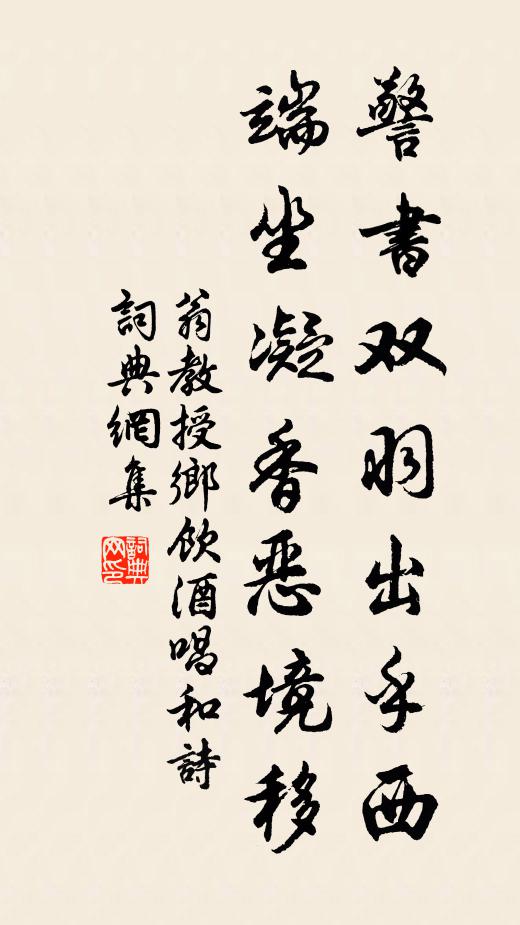 警書双羽出乎西
端坐凝香恶境移
翁教授鄉飲酒唱和詩
詞典網集
詞典网印